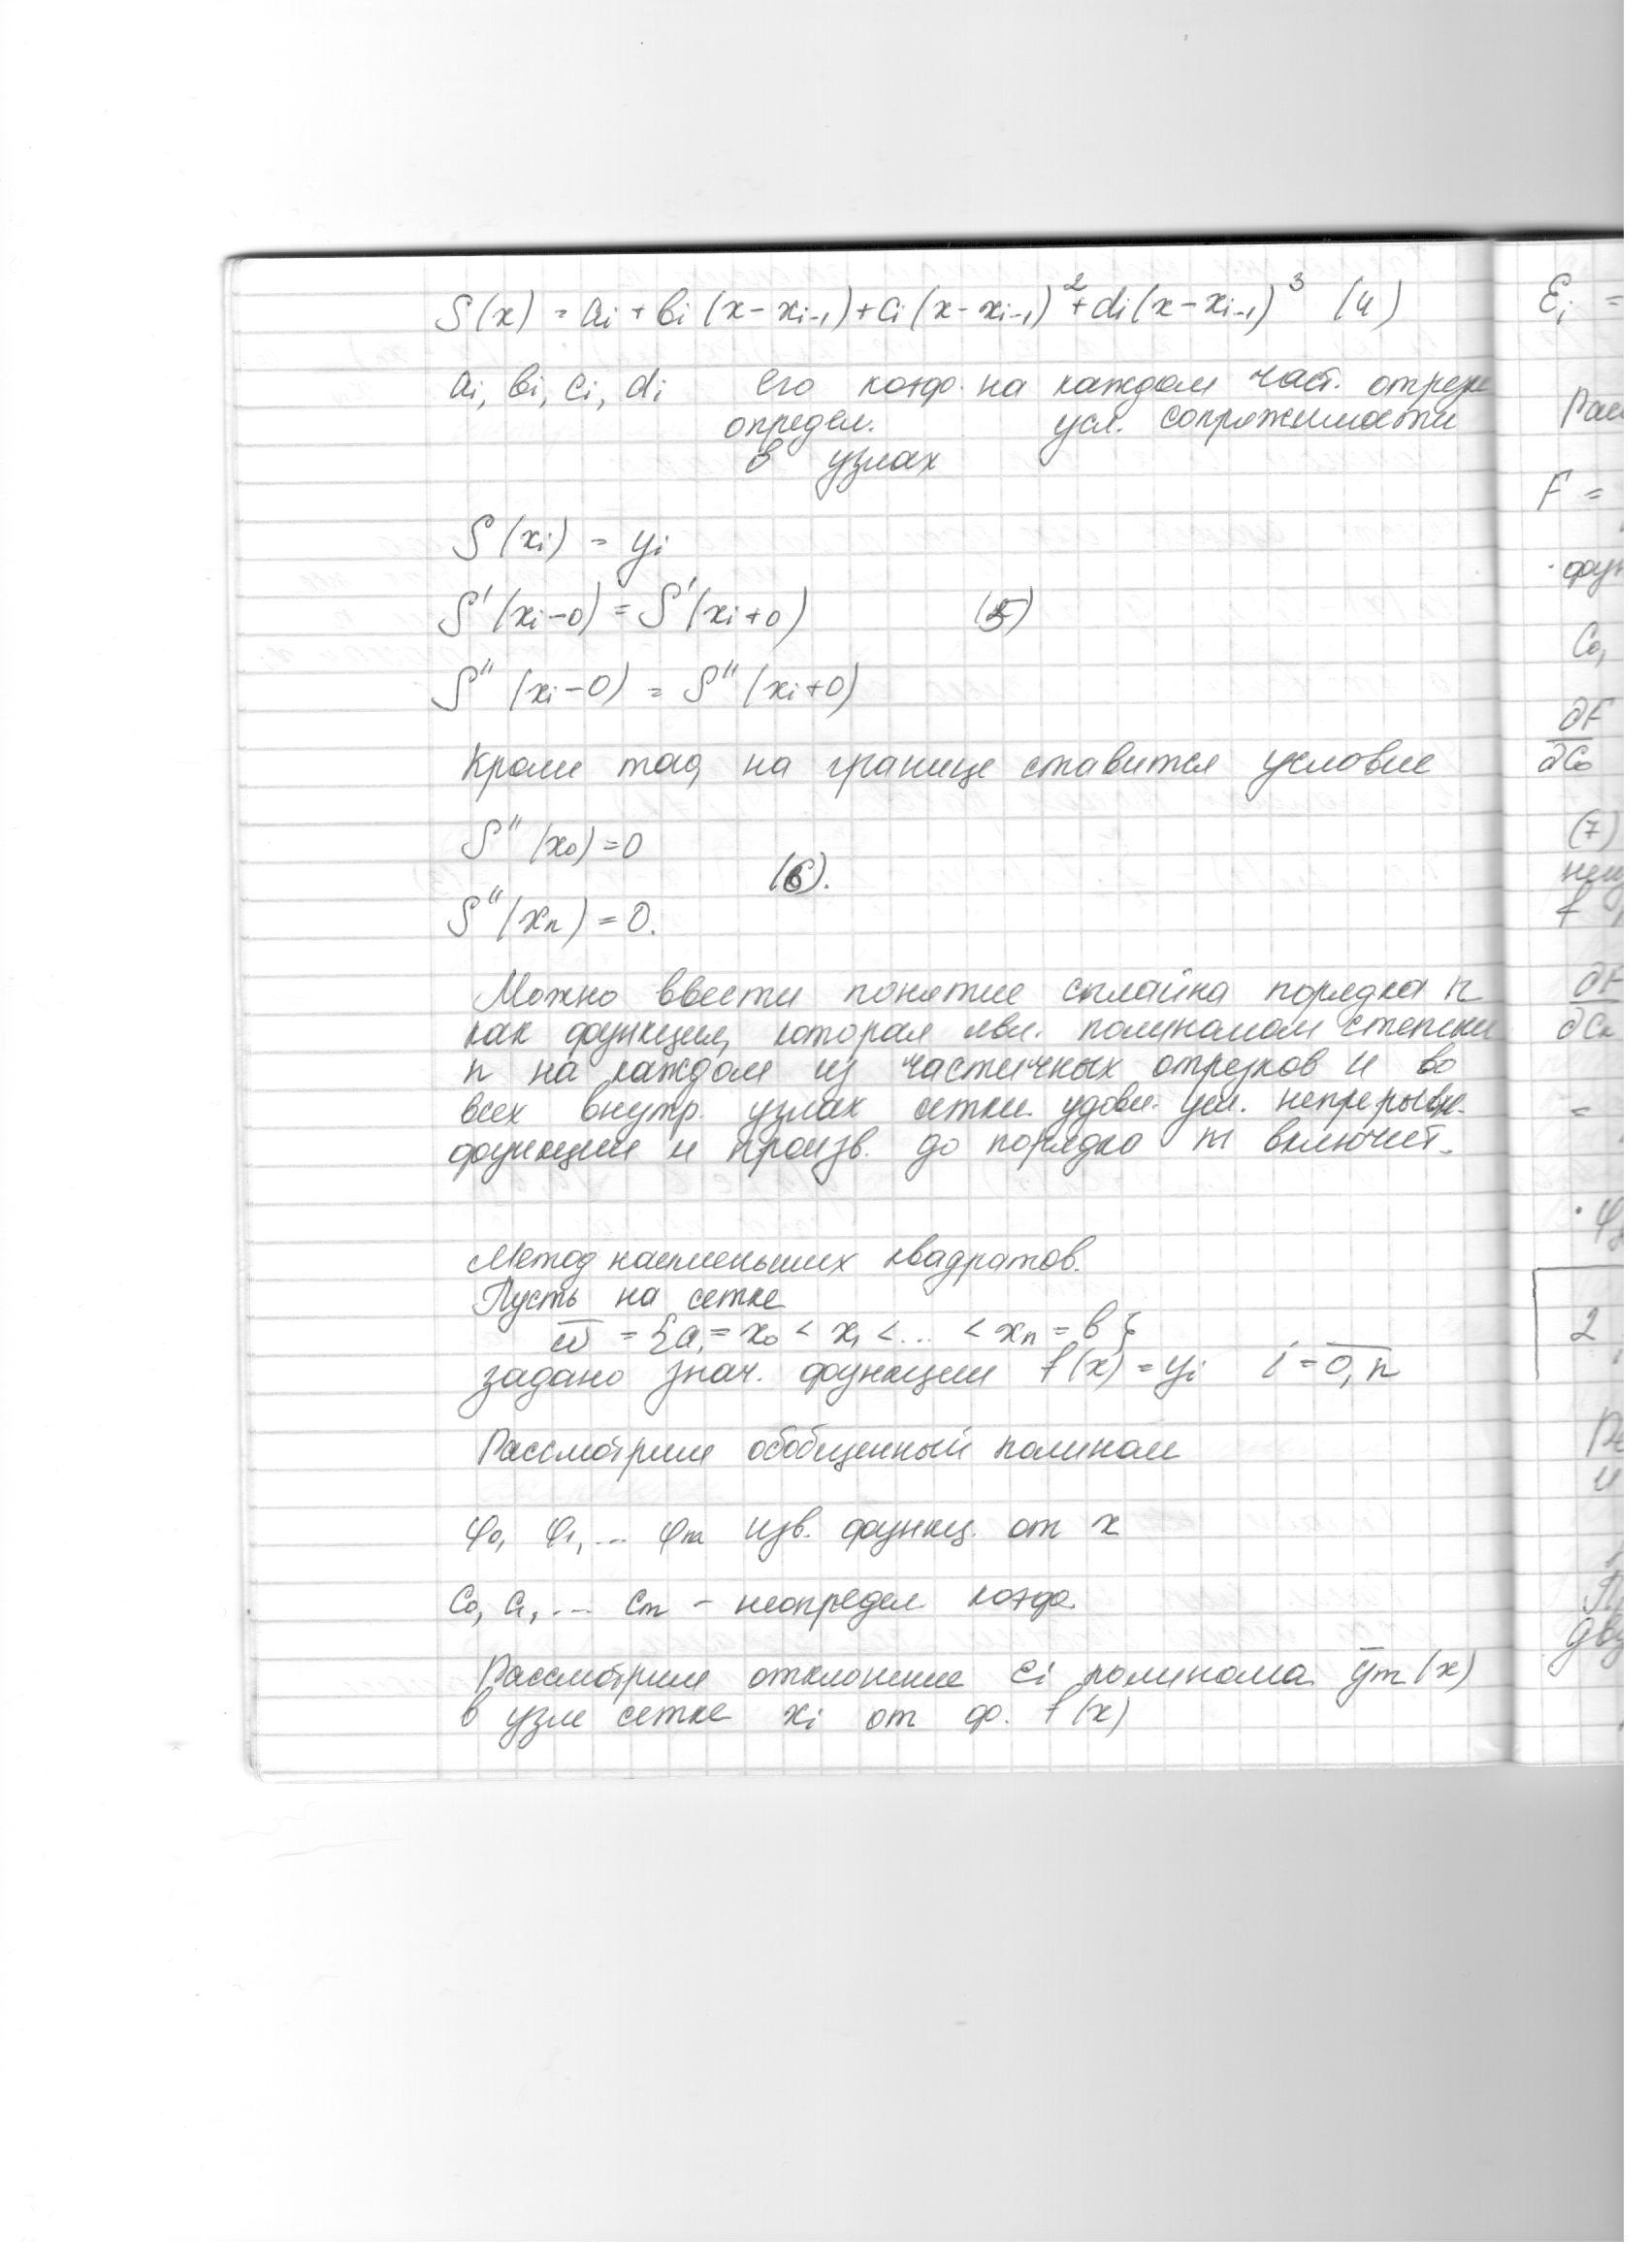 S(x) = ai + bi (x - xi-1) + ci (x - xi-1)² + di (x - xi-1)³ (4)
ai, bi, ci, di его коэф. на каждом част. отрезке
определ. усл. сопряжимости
в узлах
S(xi) = yi
S'(xi-0) = S'(xi+0) (5)
S''(xi-0) = S''(xi+0)
Кроме того, на границе ставится условие
S''(x0) = 0
(6).
S''(xn) = 0.
Можно ввести понятие сплайна порядка n
как функция, которая явл. полиномом степени
n на каждом из частичных отрезков и во
всех внутр. узлах сетки удовл. усл. непрерывн.
функции и произв. до порядка m включит.
Метод наименьших квадратов.
Пусть на сетке
ω̅ = {a = x0 < x1 < ... < xn = b}
задано знач. функции f(x) = yi i = 0,n
Рассмотрим обобщенный полином
φ0, φ1, ... φm изв. функц. от x
C0, C1, ... Cm - неопредел коэф.
Рассмотрим отклонение εi полинома y̅m(x)
в узле сетке xi от ф. f(x)
Ei =
F =
C0,
∂F
∂C0
(7)
∂F
=
2